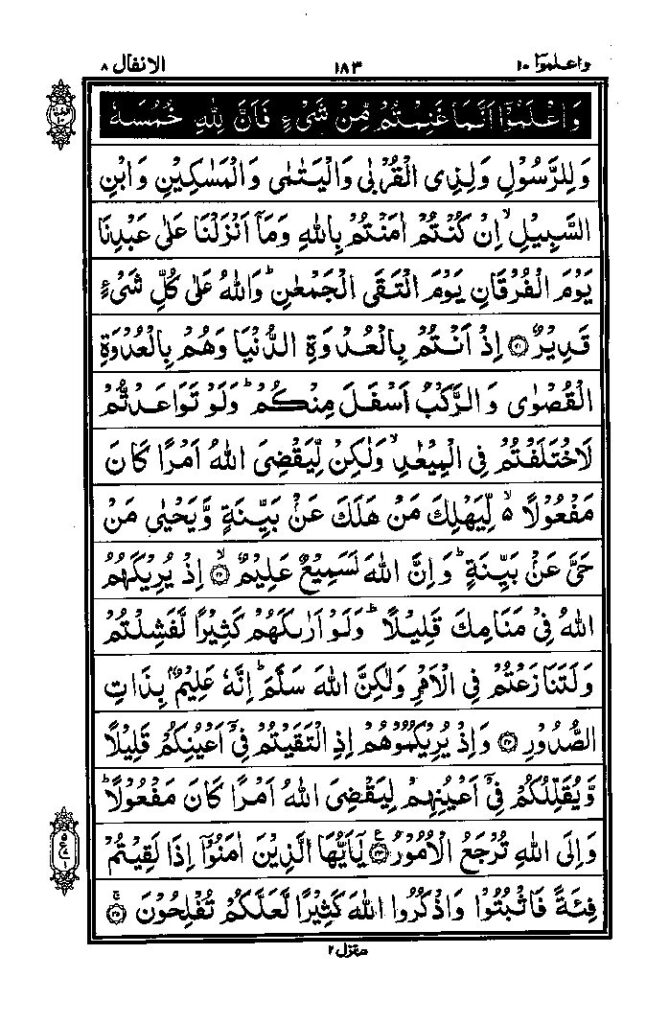 واعلموا ١٠
١٨٣
الانفال ٨
وَاعْلَمُوْۤا اَنَّمَا غَنِمْتُمْ مِّنْ شَیْءٍ فَاَنَّ لِلّٰهِ خُمُسَهٗ
وَلِلرَّسُوْلِ وَلِذِی الْقُرْبٰی وَالْیَتٰمٰی وَالْمَسٰكِیْنِ وَابْنِ
السَّبِیْلِ ۙ اِنْ كُنْتُمْ اٰمَنْتُمْ بِاللّٰهِ وَمَاۤ اَنْزَلْنَا عَلٰی عَبْدِنَا
یَوْمَ الْفُرْقَانِ یَوْمَ الْتَقَی الْجَمْعٰنِ ؕ وَاللّٰهُ عَلٰی كُلِّ شَیْءٍ
قَدِیْرٌ ﴿۴۱﴾ اِذْ اَنْتُمْ بِالْعُدْوَةِ الدُّنْیَا وَهُمْ بِالْعُدْوَةِ
الْقُصْوٰی وَالرَّكْبُ اَسْفَلَ مِنْكُمْ ؕ وَلَوْ تَوَاعَدْتُّمْ
لَاخْتَلَفْتُمْ فِی الْمِیْعٰدِ ۙ وَلٰكِنْ لِّیَقْضِیَ اللّٰهُ اَمْرًا كَانَ
مَفْعُوْلًا ۙ۵ لِّیَهْلِكَ مَنْ هَلَكَ عَنْۢ بَیِّنَةٍ وَّیَحْیٰی مَنْ
حَیَّ عَنْۢ بَیِّنَةٍ ؕ وَاِنَّ اللّٰهَ لَسَمِیْعٌ عَلِیْمٌ ﴿ۙ۴۲﴾ اِذْ یُرِیْكَهُمُ
اللّٰهُ فِیْ مَنَامِكَ قَلِیْلًا ؕ وَلَوْ اَرٰىكَهُمْ كَثِیْرًا لَّفَشِلْتُمْ
وَلَتَنَازَعْتُمْ فِی الْاَمْرِ وَلٰكِنَّ اللّٰهَ سَلَّمَ ؕ اِنَّهٗ عَلِیْمٌۢ بِذَاتِ
الصُّدُوْرِ ﴿۴۳﴾ وَاِذْ یُرِیْكُمُوْهُمْ اِذِ الْتَقَیْتُمْ فِیْۤ اَعْیُنِكُمْ قَلِیْلًا
وَّیُقَلِّلُكُمْ فِیْۤ اَعْیُنِهِمْ لِیَقْضِیَ اللّٰهُ اَمْرًا كَانَ مَفْعُوْلًا ؕ
وَاِلَی اللّٰهِ تُرْجَعُ الْاُمُوْرُ ﴿۴۴﴾ ع یٰۤاَیُّهَا الَّذِیْنَ اٰمَنُوْۤا اِذَا لَقِیْتُمْ
فِئَةً فَاثْبُتُوْا وَاذْكُرُوا اللّٰهَ كَثِیْرًا لَّعَلَّكُمْ تُفْلِحُوْنَ ﴿ۚ۴۵﴾
منزل ٢